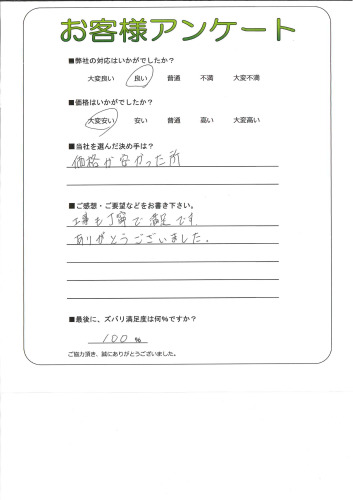 お客様アンケート
■弊社の対応はいかがでしたか？
大変良い 良い 普通 不満 大変不満
■価格はいかがでしたか？
大変安い 安い 普通 高い 大変高い
■当社を選んだ決め手は？
価格が安かった所
■ご感想・ご要望などをお書き下さい。
工事も丁寧で満足です。
ありがとうございました。
■最後に、ズバリ満足度は何%ですか？
100 %
ご協力頂き、誠にありがとうございました。